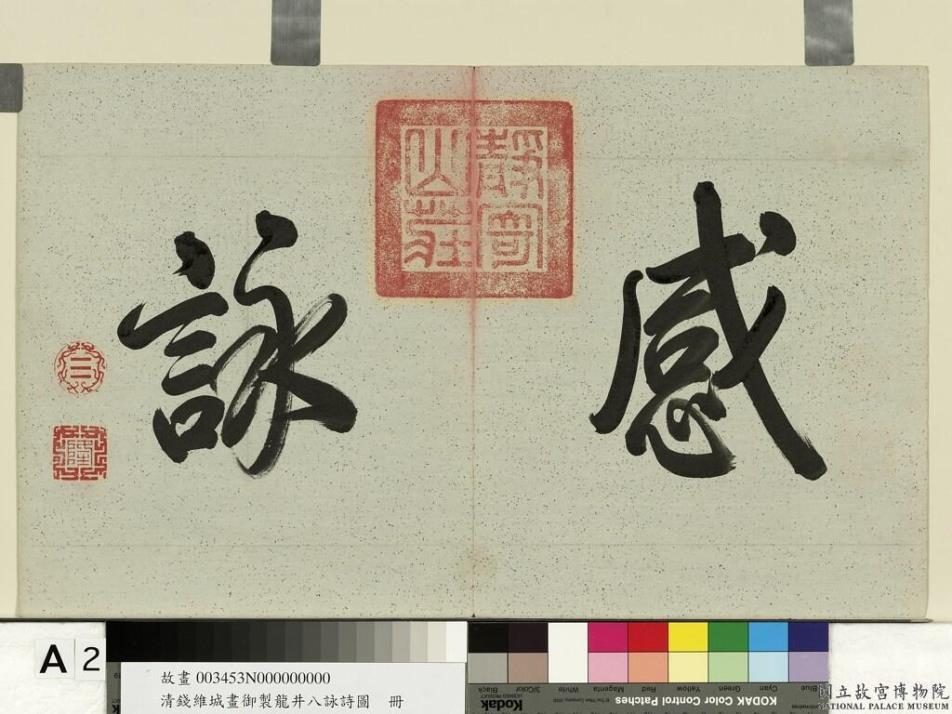 靜寄
山莊
感
詠
三
隆
A 2
故畫 003453N000000000
清錢維城畫御製龍井八詠詩圖 冊
Black
3/Color
White
Magenta
Red
Yellow
Green
Cyan
Blue
Kodak
KODAK Color Control Patches
國立故宮博物院
NATIONAL PALACE MUSEUM